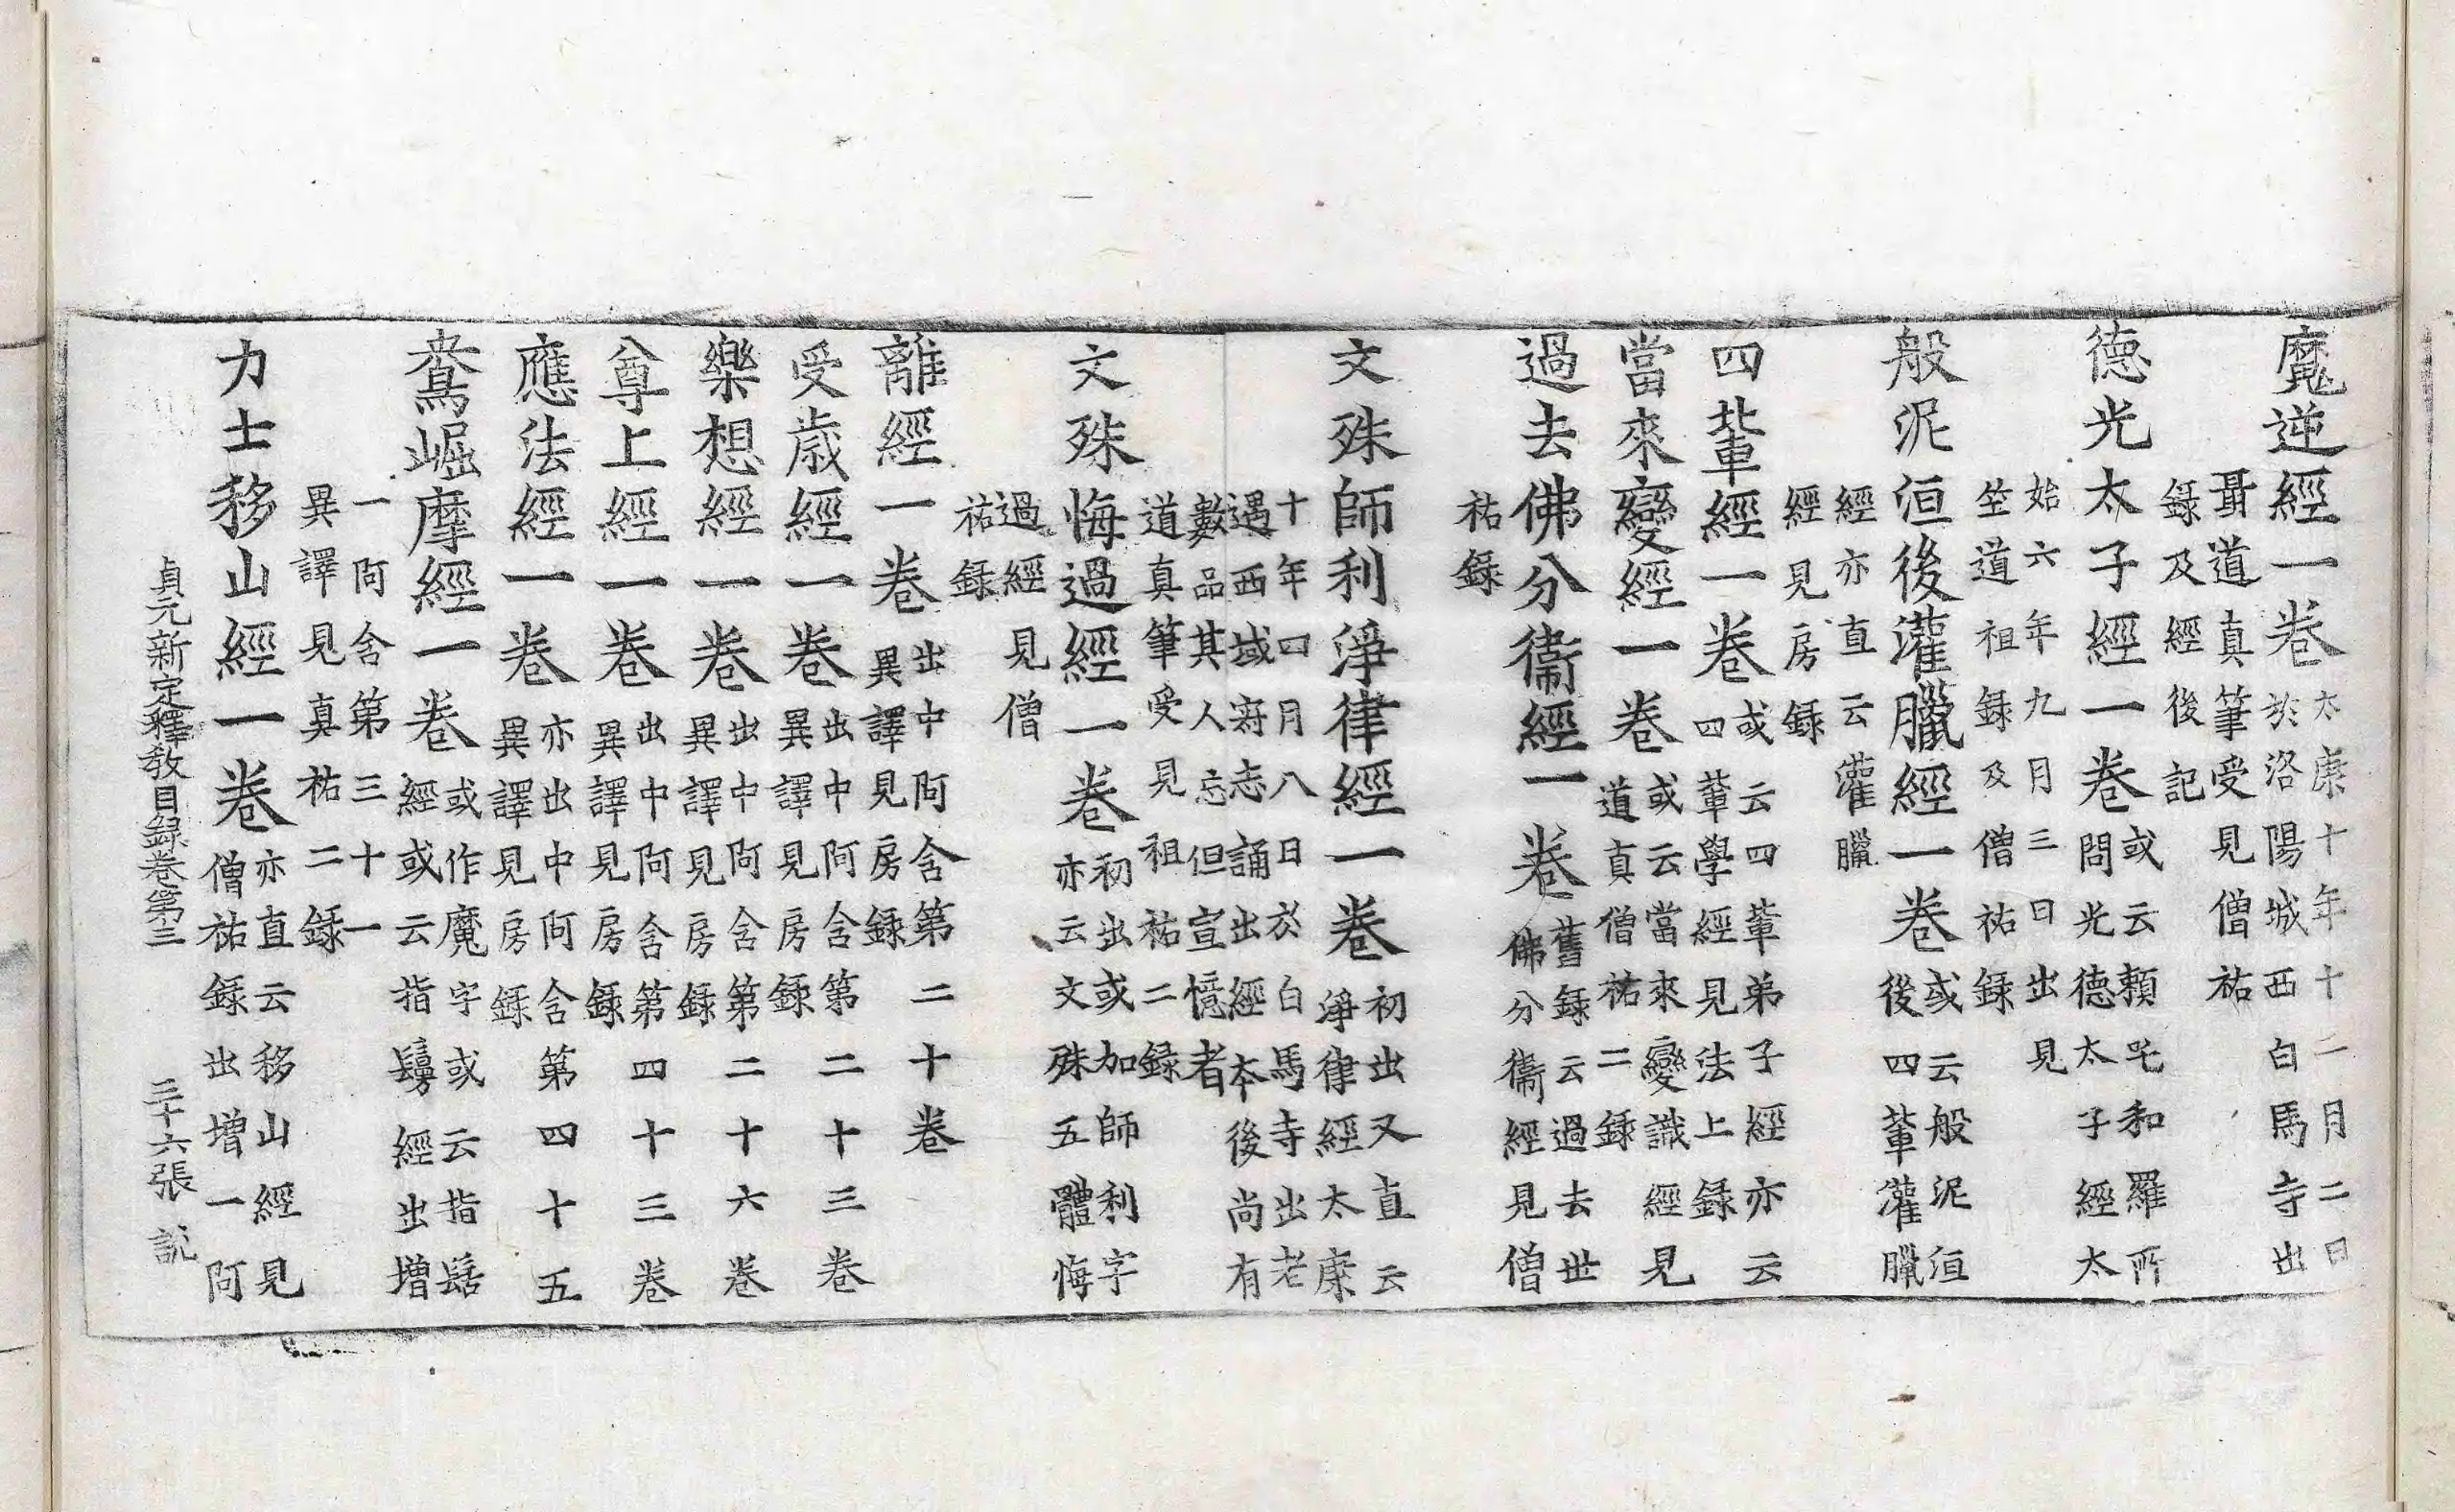 魔逆經一卷 太康十年十二月二日
於洛陽城西白馬寺出
聶道真筆受見僧祐
錄及經後記
德光太子經一卷 或云賴吒和羅所
問光德太子經太
始六年九月三日出見
竺道祖錄及僧祐錄
般泥洹後灌臘經一卷 或云般泥洹
後四輩灌臘
經亦直云灌臘
經見房錄
四輩經一卷 或云四輩弟子經亦云
四輩學經見法上錄
當來變經一卷 或云當來變識經見
道真僧祐二錄
過去佛分衞經一卷 舊錄云過去世
佛分衞經見僧
祐錄
文殊師利淨律經一卷 初出又直云
淨律經太康
十年四月八日於白馬寺出老
遇西域寂志誦出經本後尚有
數品其人忘但宣憶者
道真筆受見祖祐二錄
文殊悔過經一卷 初出或加師利字
亦云文殊五體悔
過經見僧
祐錄
離經一卷 出中阿含第二十卷
異譯見房錄
受歲經一卷 出中阿含第二十三卷
異譯見房錄
樂想經一卷 出中阿含第二十六卷
異譯見房錄
尊上經一卷 出中阿含第四十三卷
異譯見房錄
應法經一卷 亦出中阿含第四十五
異譯見房錄
鴦崛摩經一卷 或作魔字或云指髻
經或云指鬘經出增
一阿含第三十一
異譯見真祐二錄
力士移山經一卷 亦直云移山經見
僧祐錄出增一阿
貞元新定釋教目錄卷第三 三十六張 說